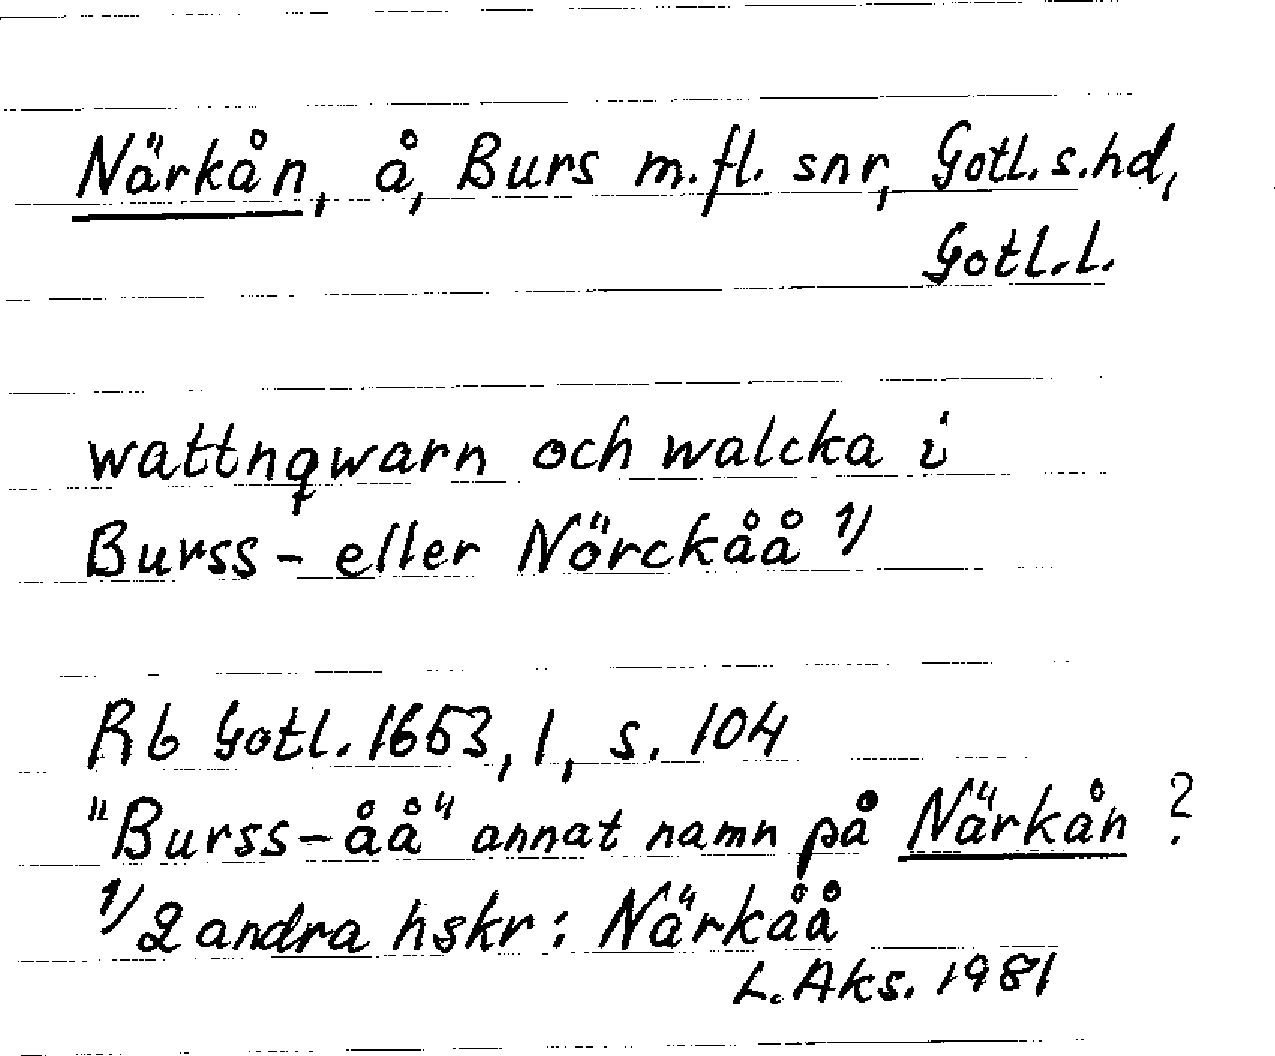 Närkån, å, Burs m.fl. snr, Gotl. s. hd,
Gotl. l.
wattnqwarn och walcka i
Burss- eller Nörckåå 1/
Rb Gotl. 1653, 1, s. 104
"Burss-åå" annat namn på Närkån ?
1/ 2 andra hskr: Närkåå
L. Aks. 1981